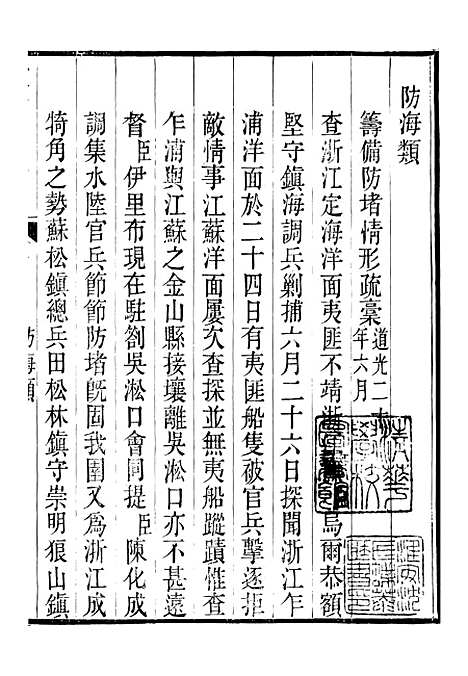 防海類
籌備防堵情形疏藁道光二十年六月
查浙江定海洋面夷匪不靖浙 烏爾恭額
堅守鎮海調兵剿捕六月二十六日探聞浙江乍
浦洋面於二十四日有夷匪船隻被官兵擊逐拒
敵情事江蘇洋面屢次查探並無夷船蹤蹟惟查
乍浦與江蘇之金山縣接壤離吳淞口亦不甚遠
督臣伊里布現在駐劄吳淞口會同提臣陳化成
調集水陸官兵節節防堵旣固我圉又爲浙江成
犄角之勢蘇松鎮總兵田松林鎮守崇明狼山鎮
防海類